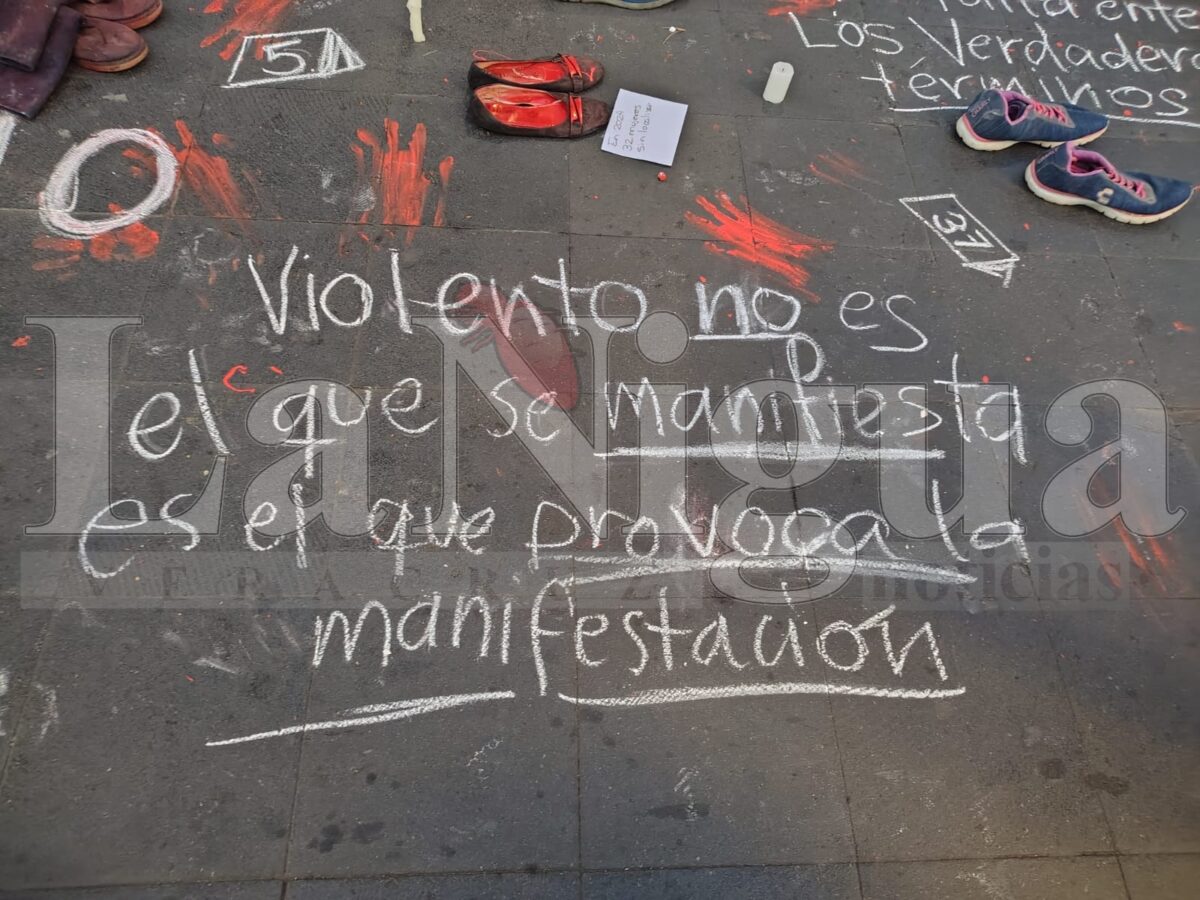 5
ente
Los Verdadera
términos
En 2024
32 mujeres
sin localizar
37
Violento no es
el que se manifiesta
es el que provoca la
manifestación
LaNigua
VERACRUZ noticias